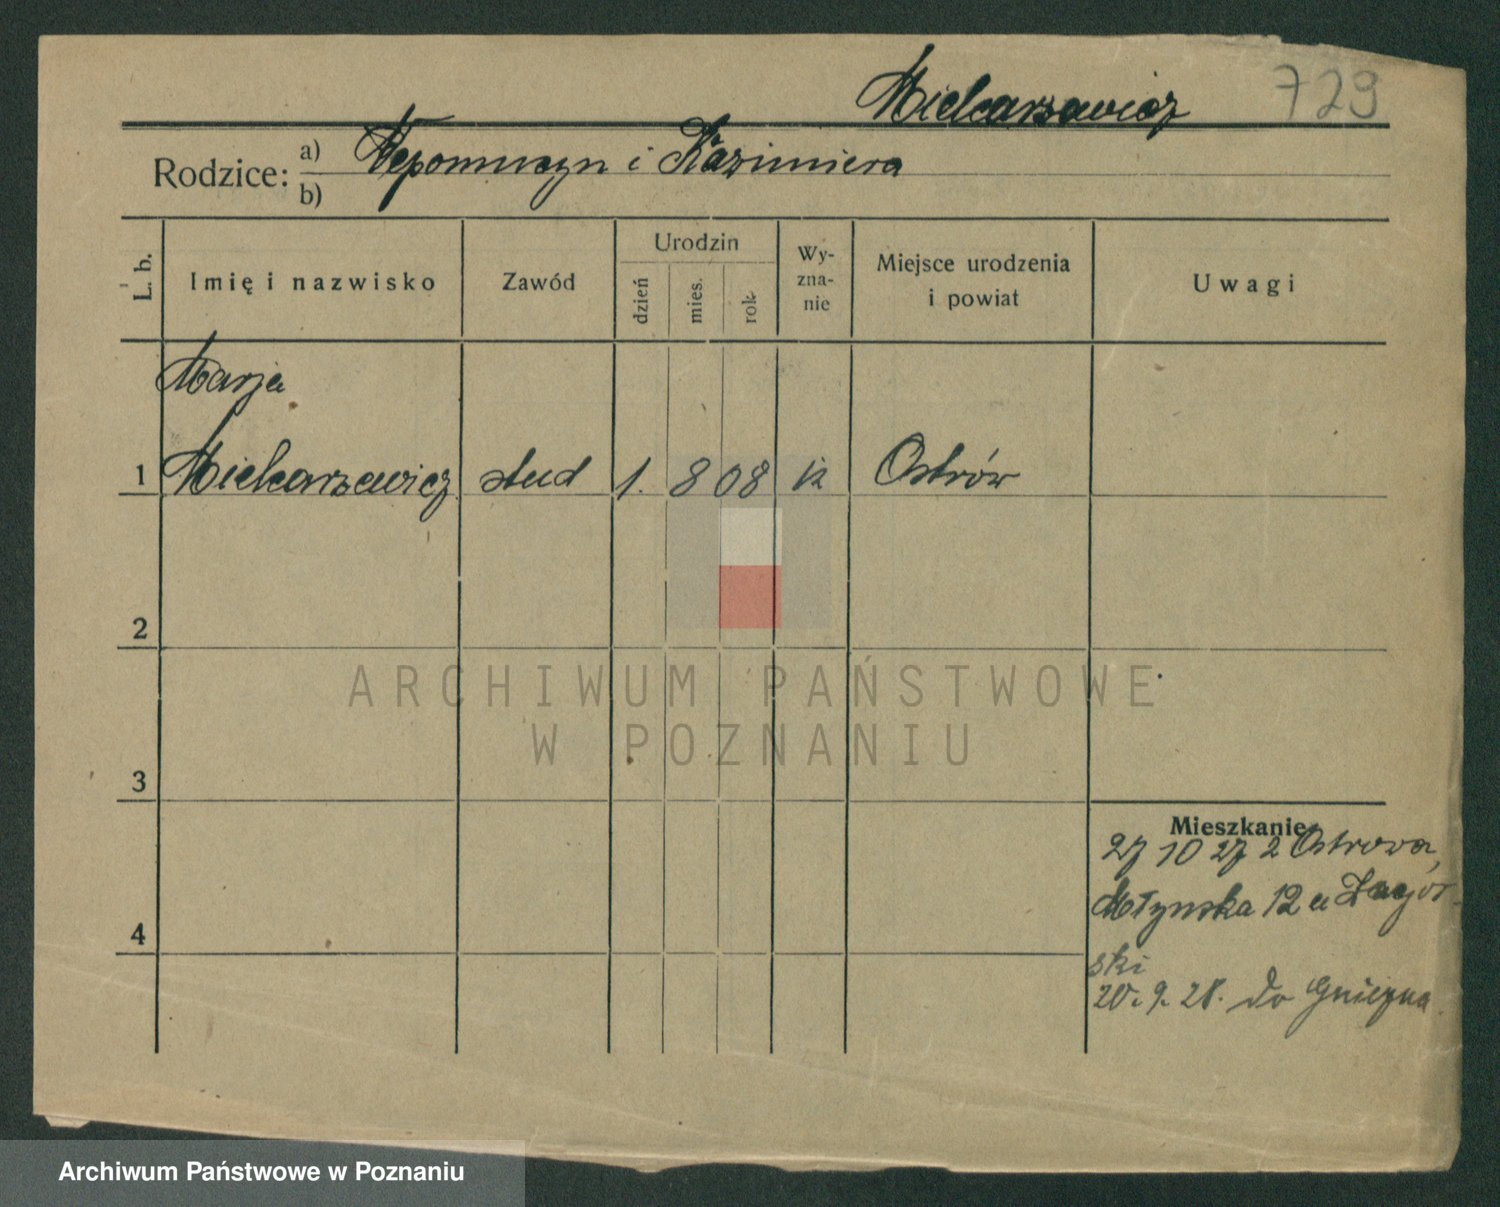 Mielcarzewicz 729
Rodzice: a) Nepomucyn i Kazimiera
b)
L. b.
Imię i nazwisko
Zawód
Urodzin
dzień
mies.
rok
Wy-
zna-
nie
Miejsce urodzenia
i powiat
Uwagi
Marja
1 Mielcarzewicz stud 1. 8 08 k Ostrów
2
3
4
Mieszkanie
27 10 27 z Ostrowa,
Młynska 12 u Zagór
ski
20. 9. 28. do Gniezna
ARCHIWUM PAŃSTWOWE
W POZNANIU
Archiwum Państwowe w Poznaniu